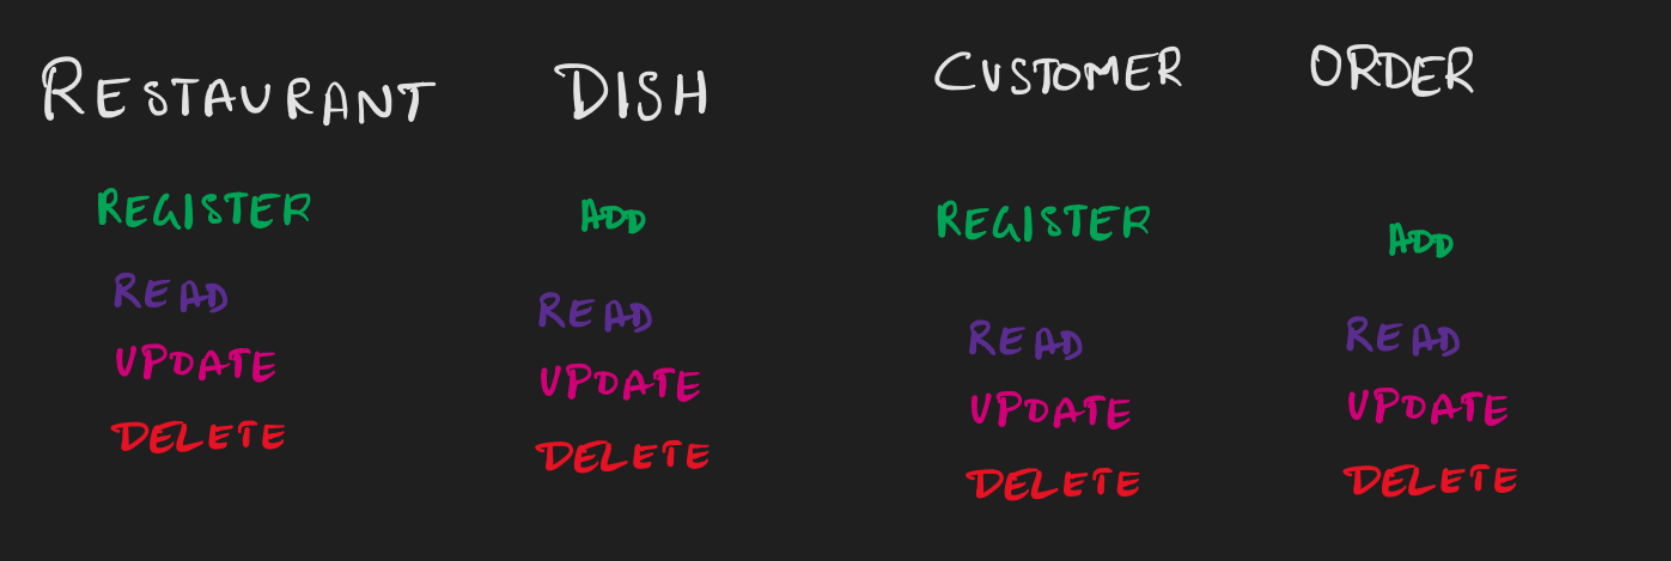 RESTAURANT
REGISTER
READ
UPDATE
DELETE
DISH
ADD
READ
UPDATE
DELETE
CUSTOMER
REGISTER
READ
UPDATE
DELETE
ORDER
ADD
READ
UPDATE
DELETE